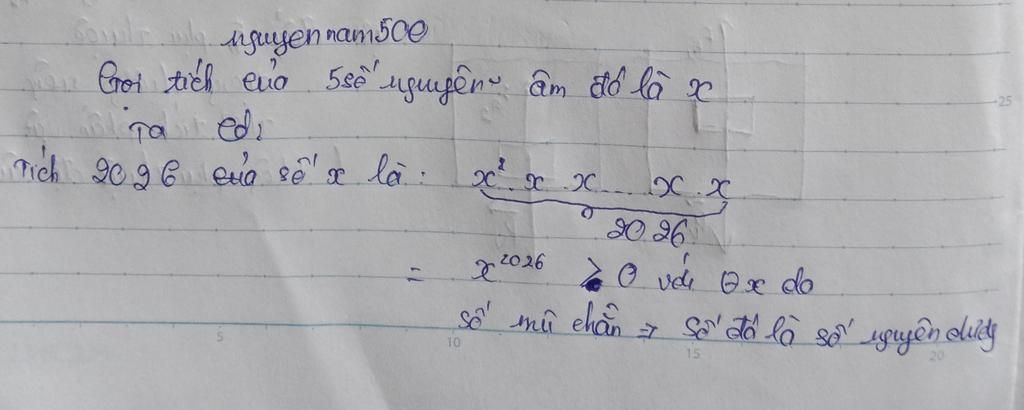 nguyennam500
Gọi tích của 5 số nguyên âm đó là x
Ta có:
Tích 2026 của số x là: x². x. x... x. x
2026
= x²⁰²⁶ ≥ 0 với θx do
số mũ chẵn ⇒ số đó là số nguyên dương
25
5
10
15
20